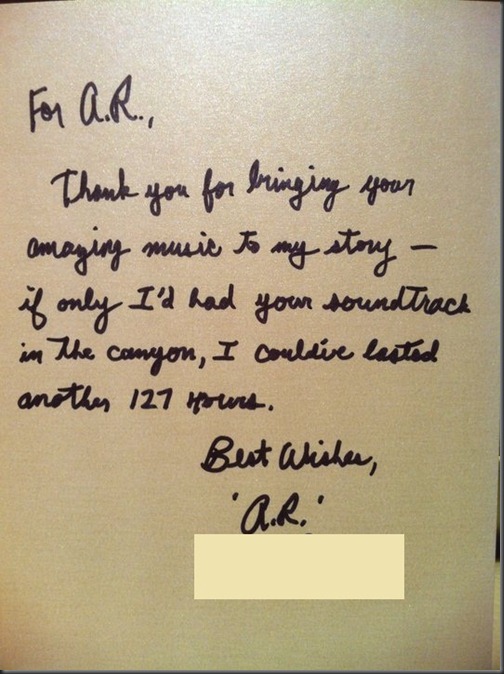 For A.R.,
Thank you for bringing your
amazing music to my story —
if only I'd had your soundtrack
in the canyon, I could've lasted
another 127 Hours.
Best Wishes,
'A.R.'